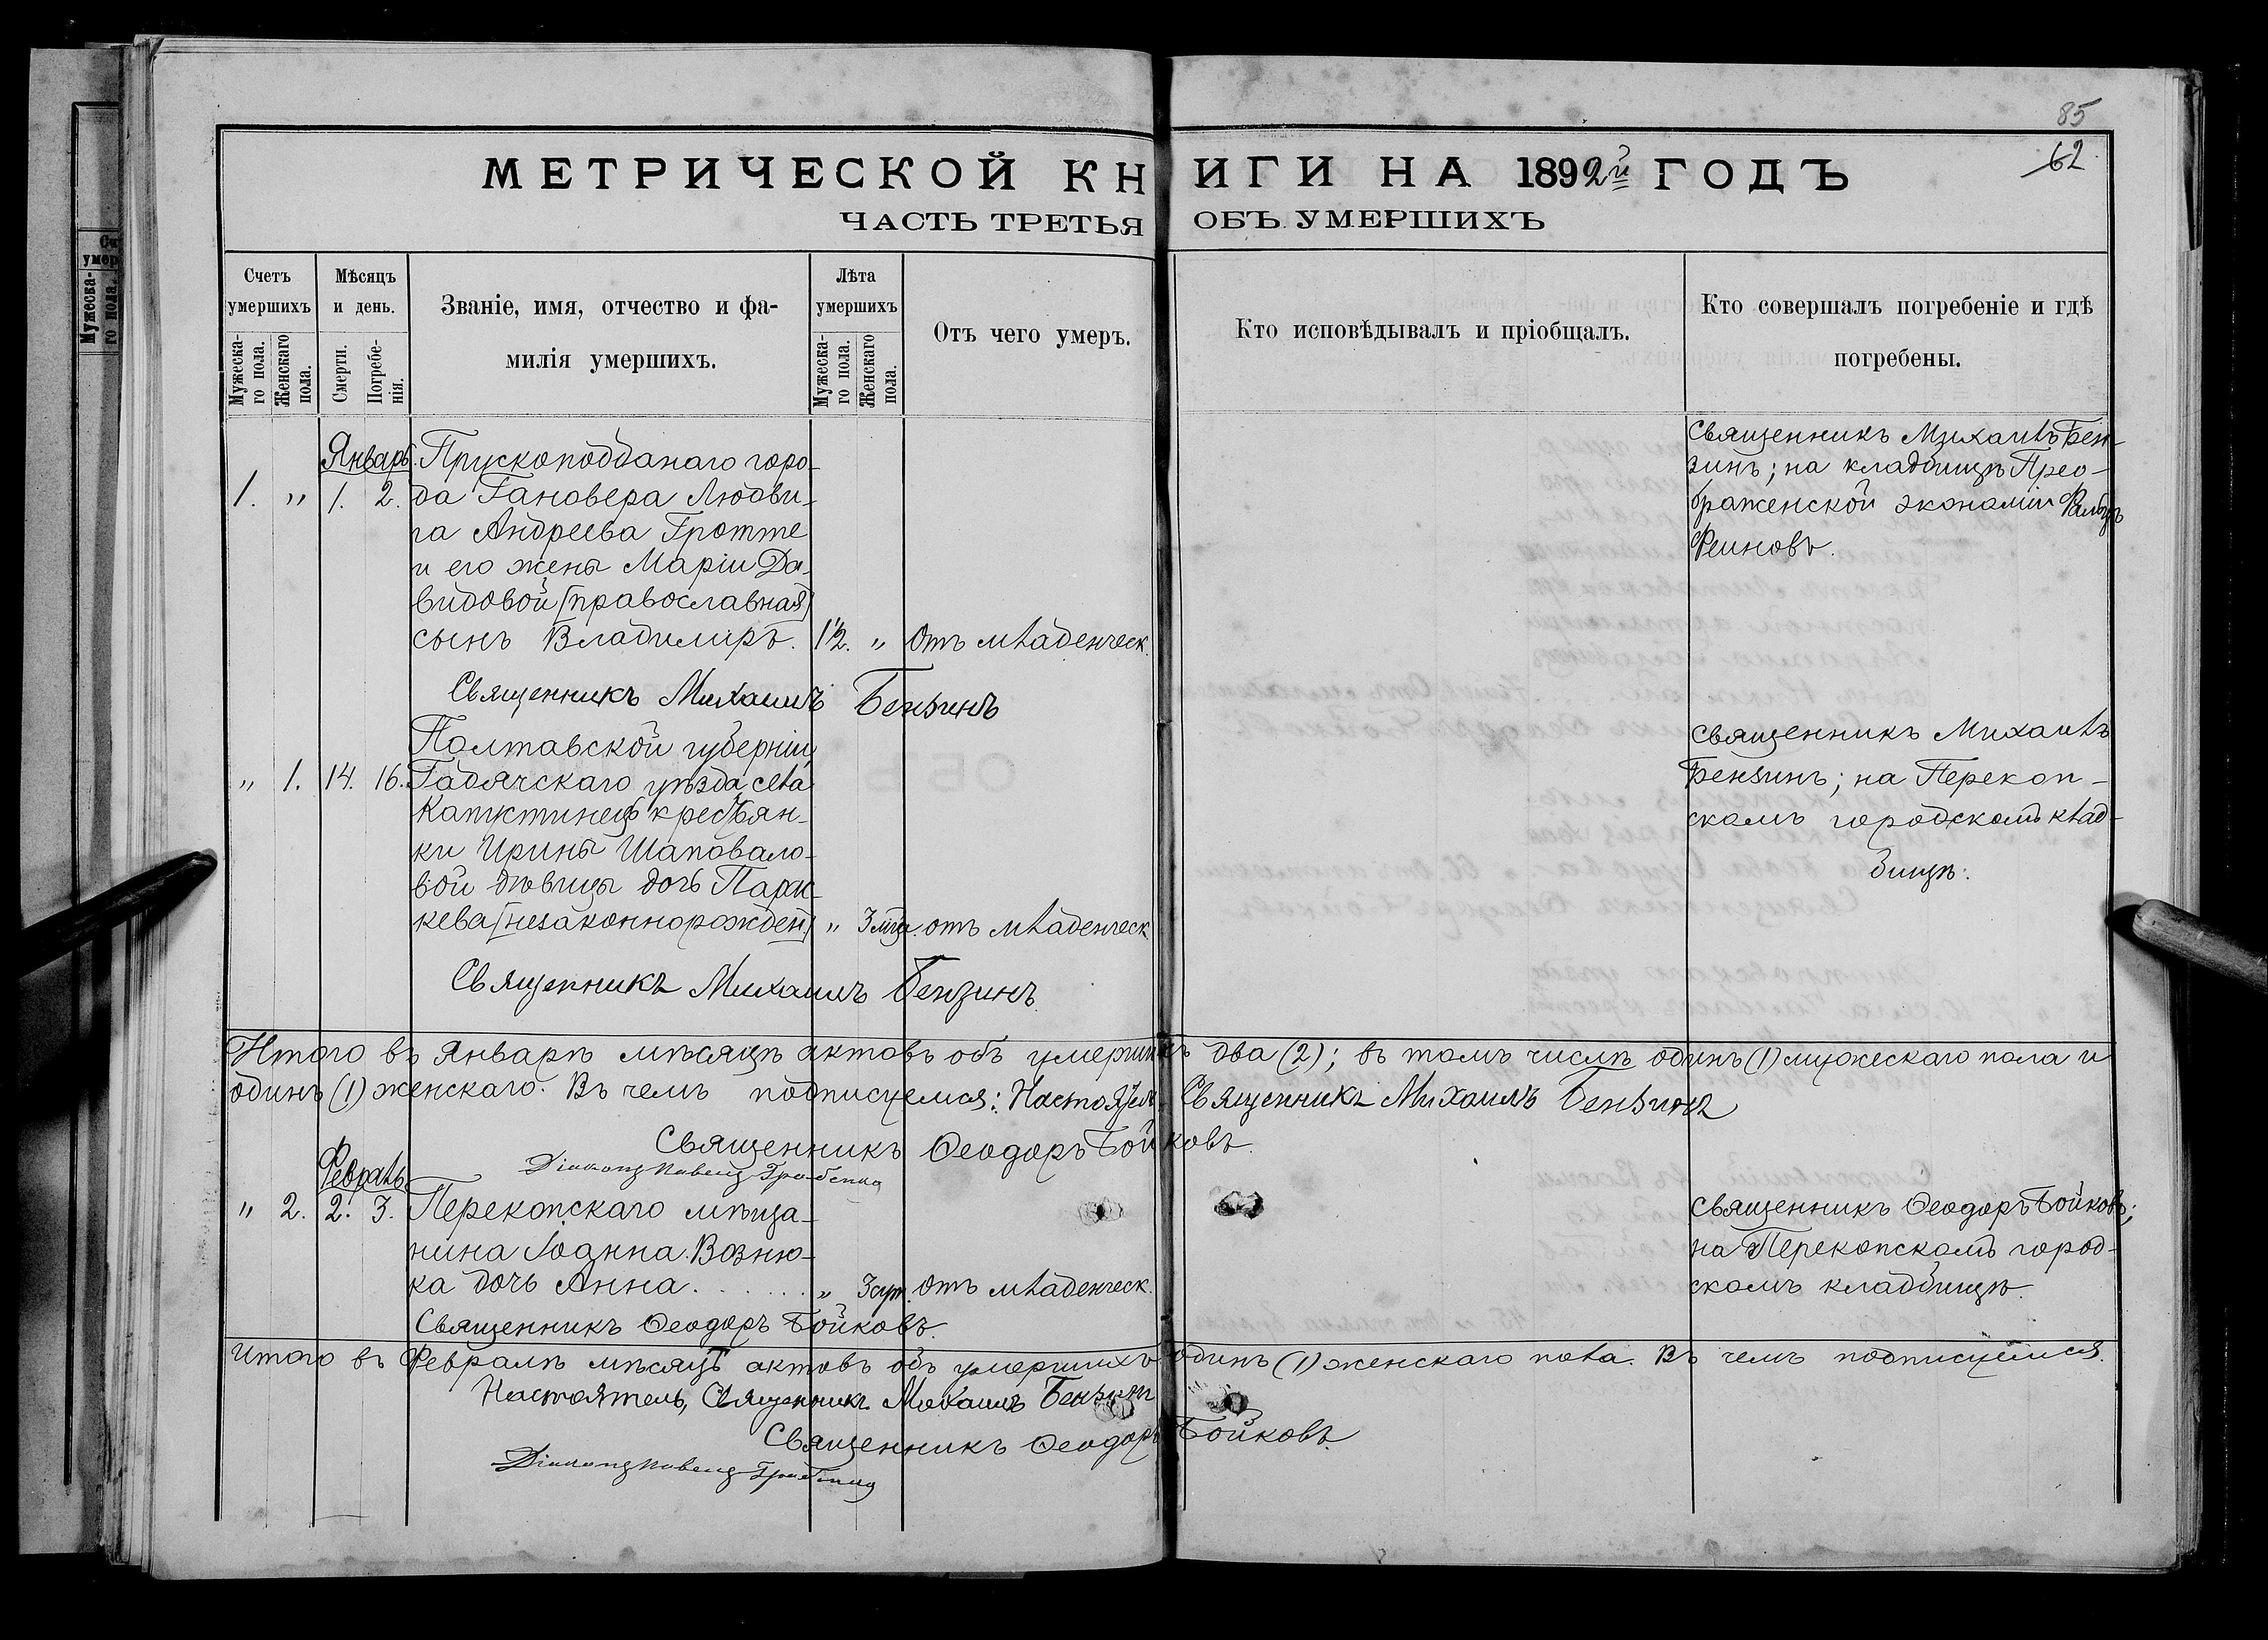 85
62
МЕТРИЧЕСКОЙ КНИГИ НА 1892й ГОДЪ
ЧАСТЬ ТРЕТЬЯ ОБЪ УМЕРШИХЪ
Счетъ умершихъ
Мужеска-го пола.
Женскаго пола.
Мѣсяцъ и день.
Смерти.
Погребе-нія.
Званіе, имя, отчество и фа-
милія умершихъ.
Лѣта умершихъ
Мужеска-го пола.
Женскаго пола.
Отъ чего умеръ.
Кто исповѣдывалъ и пріобщалъ.
Кто совершалъ погребеніе и гдѣ
погребены.
Январь.
1. " 1. 2.
Прускоподданаго горо-
да Гановера Людви-
га Андреева Гротте
и его жены Маріи Да-
видовой (православная)
сынъ Владиміръ. 1½. " Отъ младенческ.
Священникъ Михаилъ Бен-
зинъ; на кладбищѣ Прео-
браженской экономіи Фальцъ
Феиновъ.
Священникъ Михаилъ Бензинъ
" 1. 14. 16.
Полтавской губерніи,
Гадячскаго уѣзда, села
Капустинецъ крестьян-
ки Ирины Шаповало-
вой дѣвицы дочь Парас-
кева (незаконнорожден) " 3 мѣц. отъ младенческ.
Священникъ Михаилъ
Бензинъ; на Перекоп-
скомъ городскомъ клад-
бищѣ.
Священникъ Михаилъ Бензинъ
Итого въ Январѣ мѣсяцѣ актовъ объ умершихъ два (2); въ томъ числѣ одинъ (1) мужескаго пола и
одинъ (1) женскаго. Въ чемъ подписуемся: Настоятель, Священникъ Михаилъ Бензинъ
Священникъ Ѳеодоръ Бойковъ.
Діаконъ Павелъ
Февраль
" 2. 2. 3.
Перекопскаго мѣща-
нина Іоанна Возню-
ка дочь Анна. . . . . . . " 3 сут. Отъ младенческ.
Священникъ Ѳеодоръ Бойковъ;
на Перекопскомъ город-
скомъ кладбищѣ.
Священникъ Ѳеодоръ Бойковъ.
Итого въ Февралѣ мѣсяцѣ актовъ объ умершихъ одинъ (1) женскаго пола. Въ чемъ подписуемся.
Настоятель, Священникъ Михаилъ Бензинъ
Священникъ Ѳеодоръ Бойковъ.
Діаконъ Павелъ